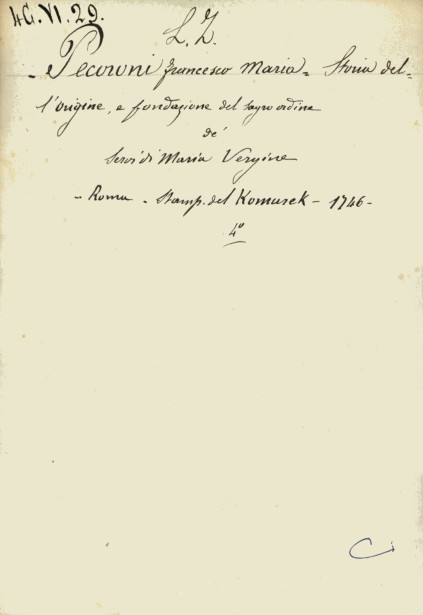 4G.VI.29.
L.Z.
- Pecoroni Francesco Maria = Storia del-
l'origine, e fondazione del sagro ordine
de'
Servi di Maria Vergine
- Roma - Stamp. del Komarek - 1746 -
4º